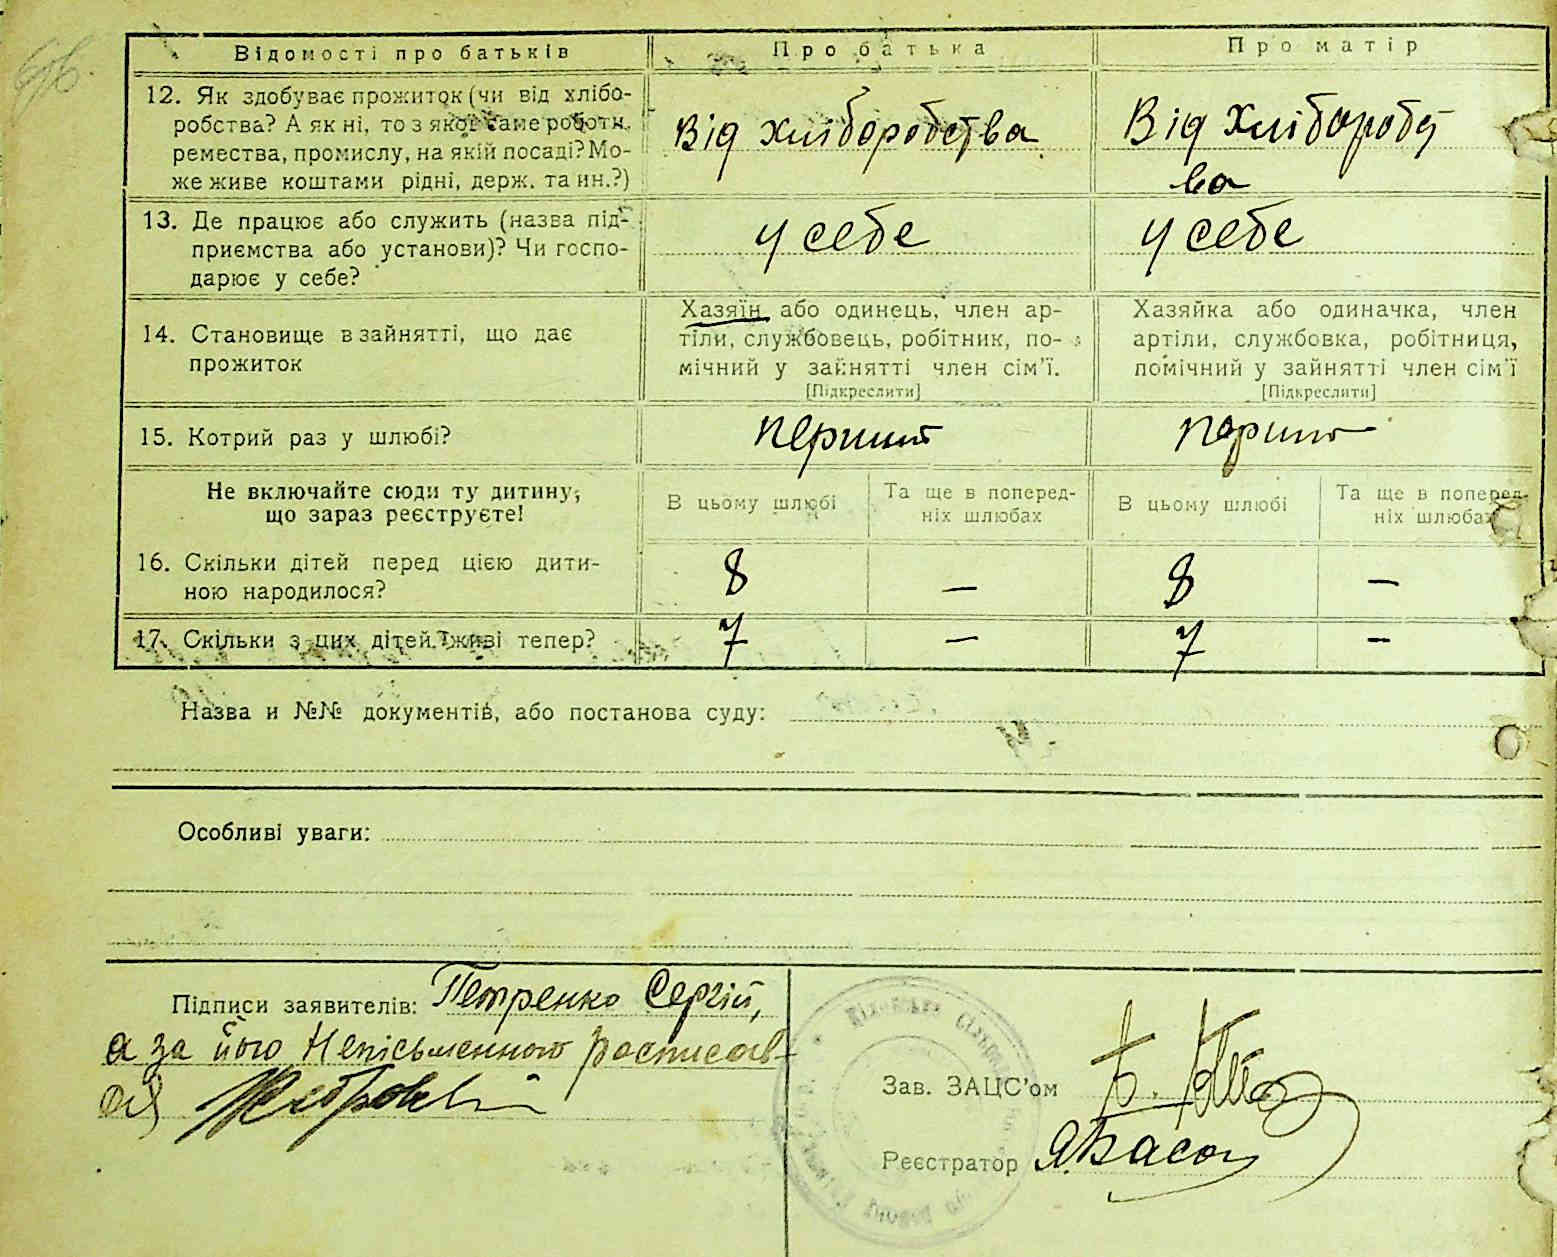 Відомості про батьків
Про батька
Про матір
12. Як здобуває прожиток (чи від хлібо-
робства? А як ні, то з якої саме роботи,
ремества, промислу, на якій посаді? Мо-
же живе коштами рідні, держ. та ин.?)
Від хліборобства
Від хліборобст
ва
13. Де працює або служить (назва під-
приємства або установи)? Чи госпо-
дарює у себе?
у себе
у себе
14. Становище в зайнятті, що дає
прожиток
Хазяїн або одинець, член ар-
тіли, службовець, робітник, по-
мічний у зайнятті член сім'ї.
[Підкреслити]
Хазяйка або одиначка, член
артіли, службовка, робітниця,
помічний у зайнятті член сім'ї
[Підкреслити]
15. Котрий раз у шлюбі?
перший
Не включайте сюди ту дитину,
що зараз реєструєте!
В цьому шлюбі
Та ще в поперед-
ніх шлюбах
В цьому шлюбі
Та ще в поперед-
ніх шлюбах
16. Скільки дітей перед цією дити-
ною народилося?
8 — 8 —
17. Скільки з цих дітей живі тепер?
7 — 7 —
Назва и №№ документів, або постанова суду:
Особливі уваги:
Підписи заявителів: Петренко Сергій,
а за його Непісьменного росписав-
ся
Зав. ЗАЦС'ом
Реєстратор Я. Басо